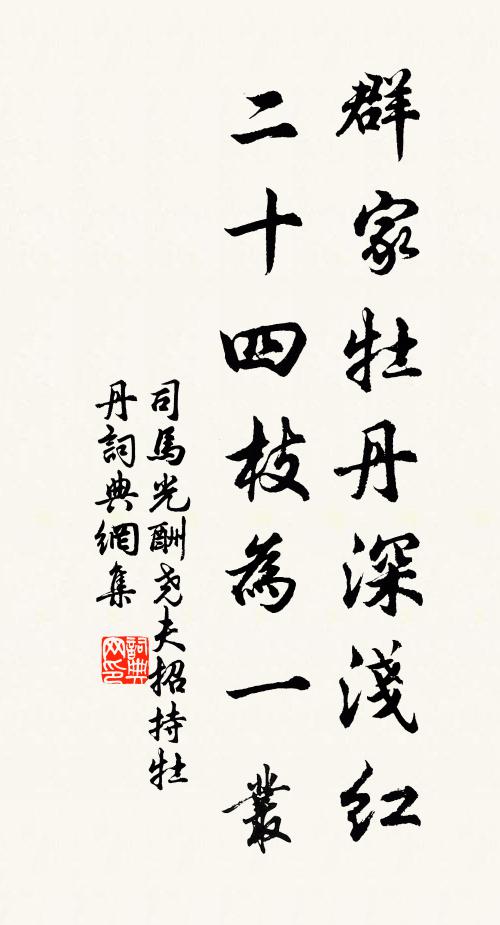 群家牡丹深淺紅
二十四枝為一叢
司馬光酬堯夫招持牡
丹詞典網集
詞典
网印